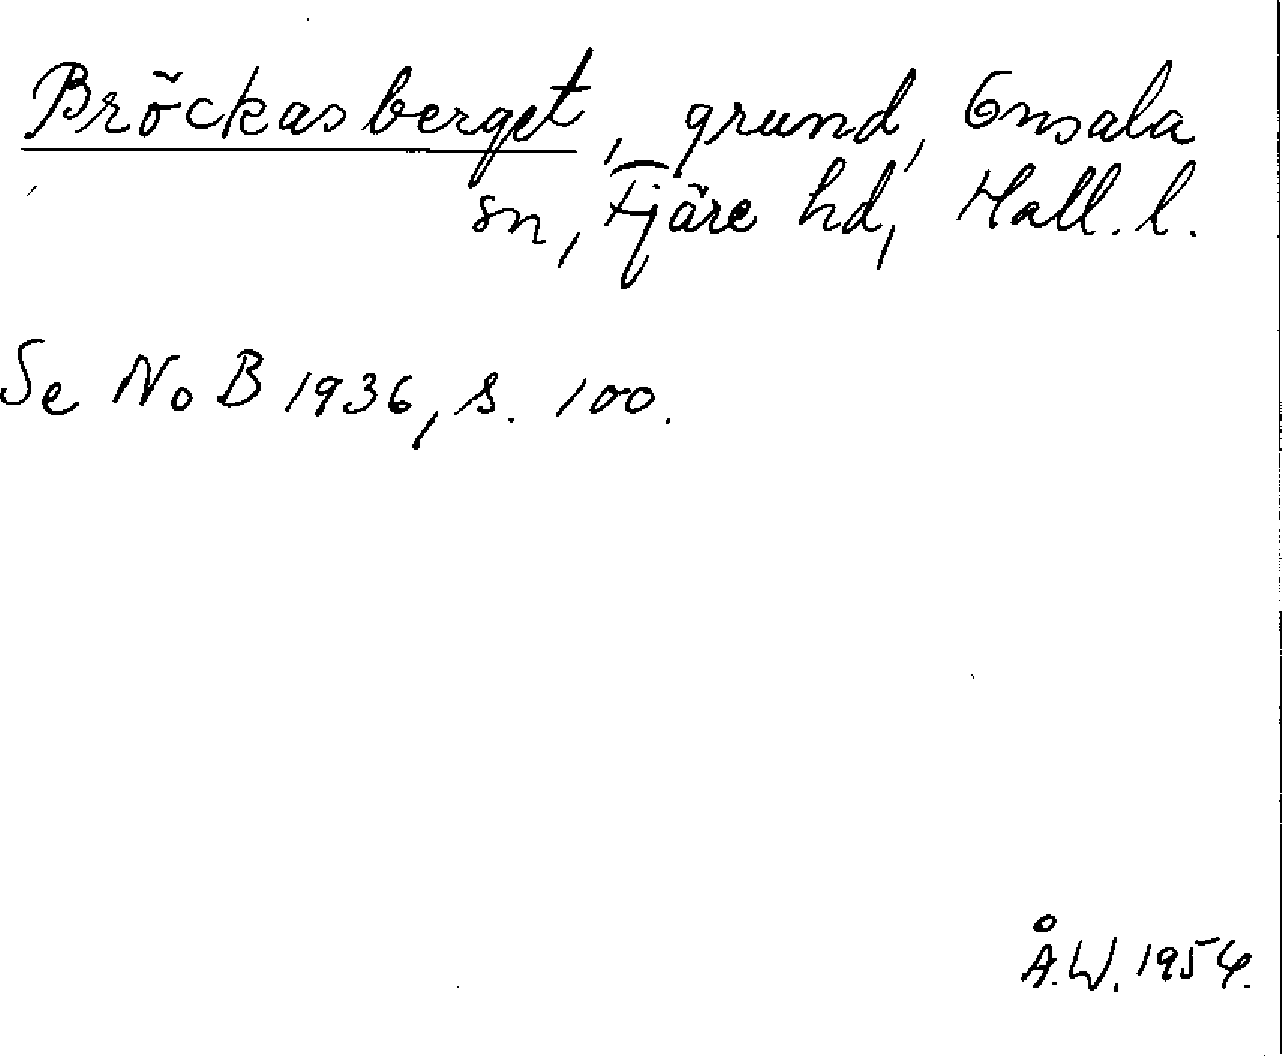 Bröckasberget, grund, Onsala
sn, Fjäre hd, Hall. l.
Se NoB 1936, s. 100.
Å.W. 1954.